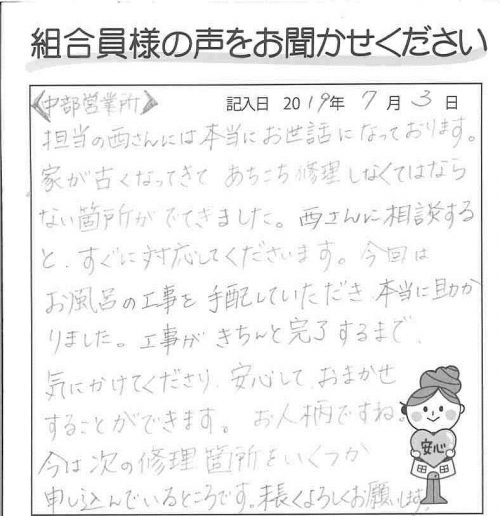 組合員様の声をお聞かせください
《中部営業所》
記入日 2019年 7月 3日
担当の西さんには本当にお世話になっております。
家が古くなってきて あちこち修理しなくてはなら
ない箇所がでてきました。西さんに相談する
と、すぐに対応してくださいます。今回は
お風呂の工事を手配していただき 本当に助か
りました。工事が きちんと完了するまで、
気にかけてくださり、安心して おまかせ
することができます。 お人柄ですね。
今は次の修理箇所をいくつか
申し込んでいるところです。末長くよろしくお願いします。
安心